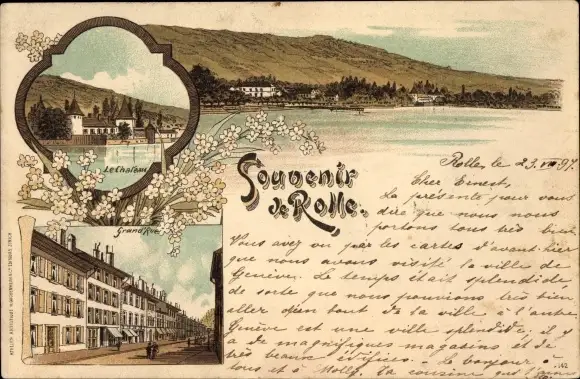 Le Chateau
Grand Rue
Souvenir
de Rolle.
Rolle, le 23. VII 97.
Cher Ernest,
La présente pour vous
dire que nous nous
portons tous très bien
Vous avez vu par les cartes d'avant hier
que nous avons visité la ville de
Genève. Le temps était splendide
de sorte que nous pouvions très bien
aller d'un bout de la ville à l'autre
Genève est une ville splendide. Il y
a de magnifiques magasins et de
très beaux édifices. Le bonjour à
tous et à Molly. Ta cousine qui t'aime
142